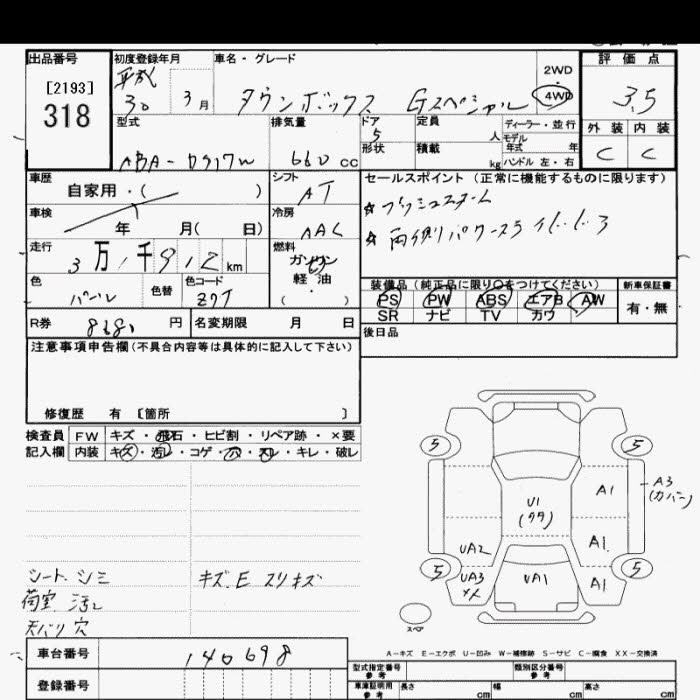 出品番号
[2193]
318
初度登録年月
平成
30 3月
車名・グレード
タウンボックス Gスペシャル
2WD
4WD
評価点
3.5
外装 内装
C C
型式
ABA-DS17W
排気量
660 cc
ドア
5
形状
定員
人
積載
kg
ディーラー・並行
モデル
年式 年
ハンドル 左・右
車歴
自家用・( )
シフト
AT
車検
年 月( 日)
冷房
AAC
走行
3万1千912km
燃料
ガソリン
軽油
( ・ )
色
パール
色替
色コード
Z7T
セールスポイント (正常に機能するものに限ります)
☆プッシュスタート
☆両側パワースライドドア
装備品 (純正品に限り○をつけてください)
PS PW ABS エアB AW
SR ナビ TV カワ
新車保証書
有・無
R券 8680 円
名変期限 月 日
後日品
注意事項申告欄 (不具合内容等は具体的に記入して下さい)
修復歴 有 〔箇所 〕
検査員
記入欄
FW キズ・飛石・ヒビ割・リペア跡・×要
内装 キズ・汚レ・コゲ・穴・スレ・キレ・破レ
シート.シミ
荷室 汚レ
天バリ穴
キズ.E スリキズ
5 5
A1
A3
(カバー)
U1
(ワワ)
A1
UA2
5 5
UA3
XX
UA1
A1
スペア
A-キズ E-エクボ U-凹み W-補修跡 S-サビ C-腐食 XX-交換済
車台番号 140698
登録番号
型式指定番号
参考
類別区分番号
参考
車庫証明用
参考
長さ cm
幅 cm
高さ cm